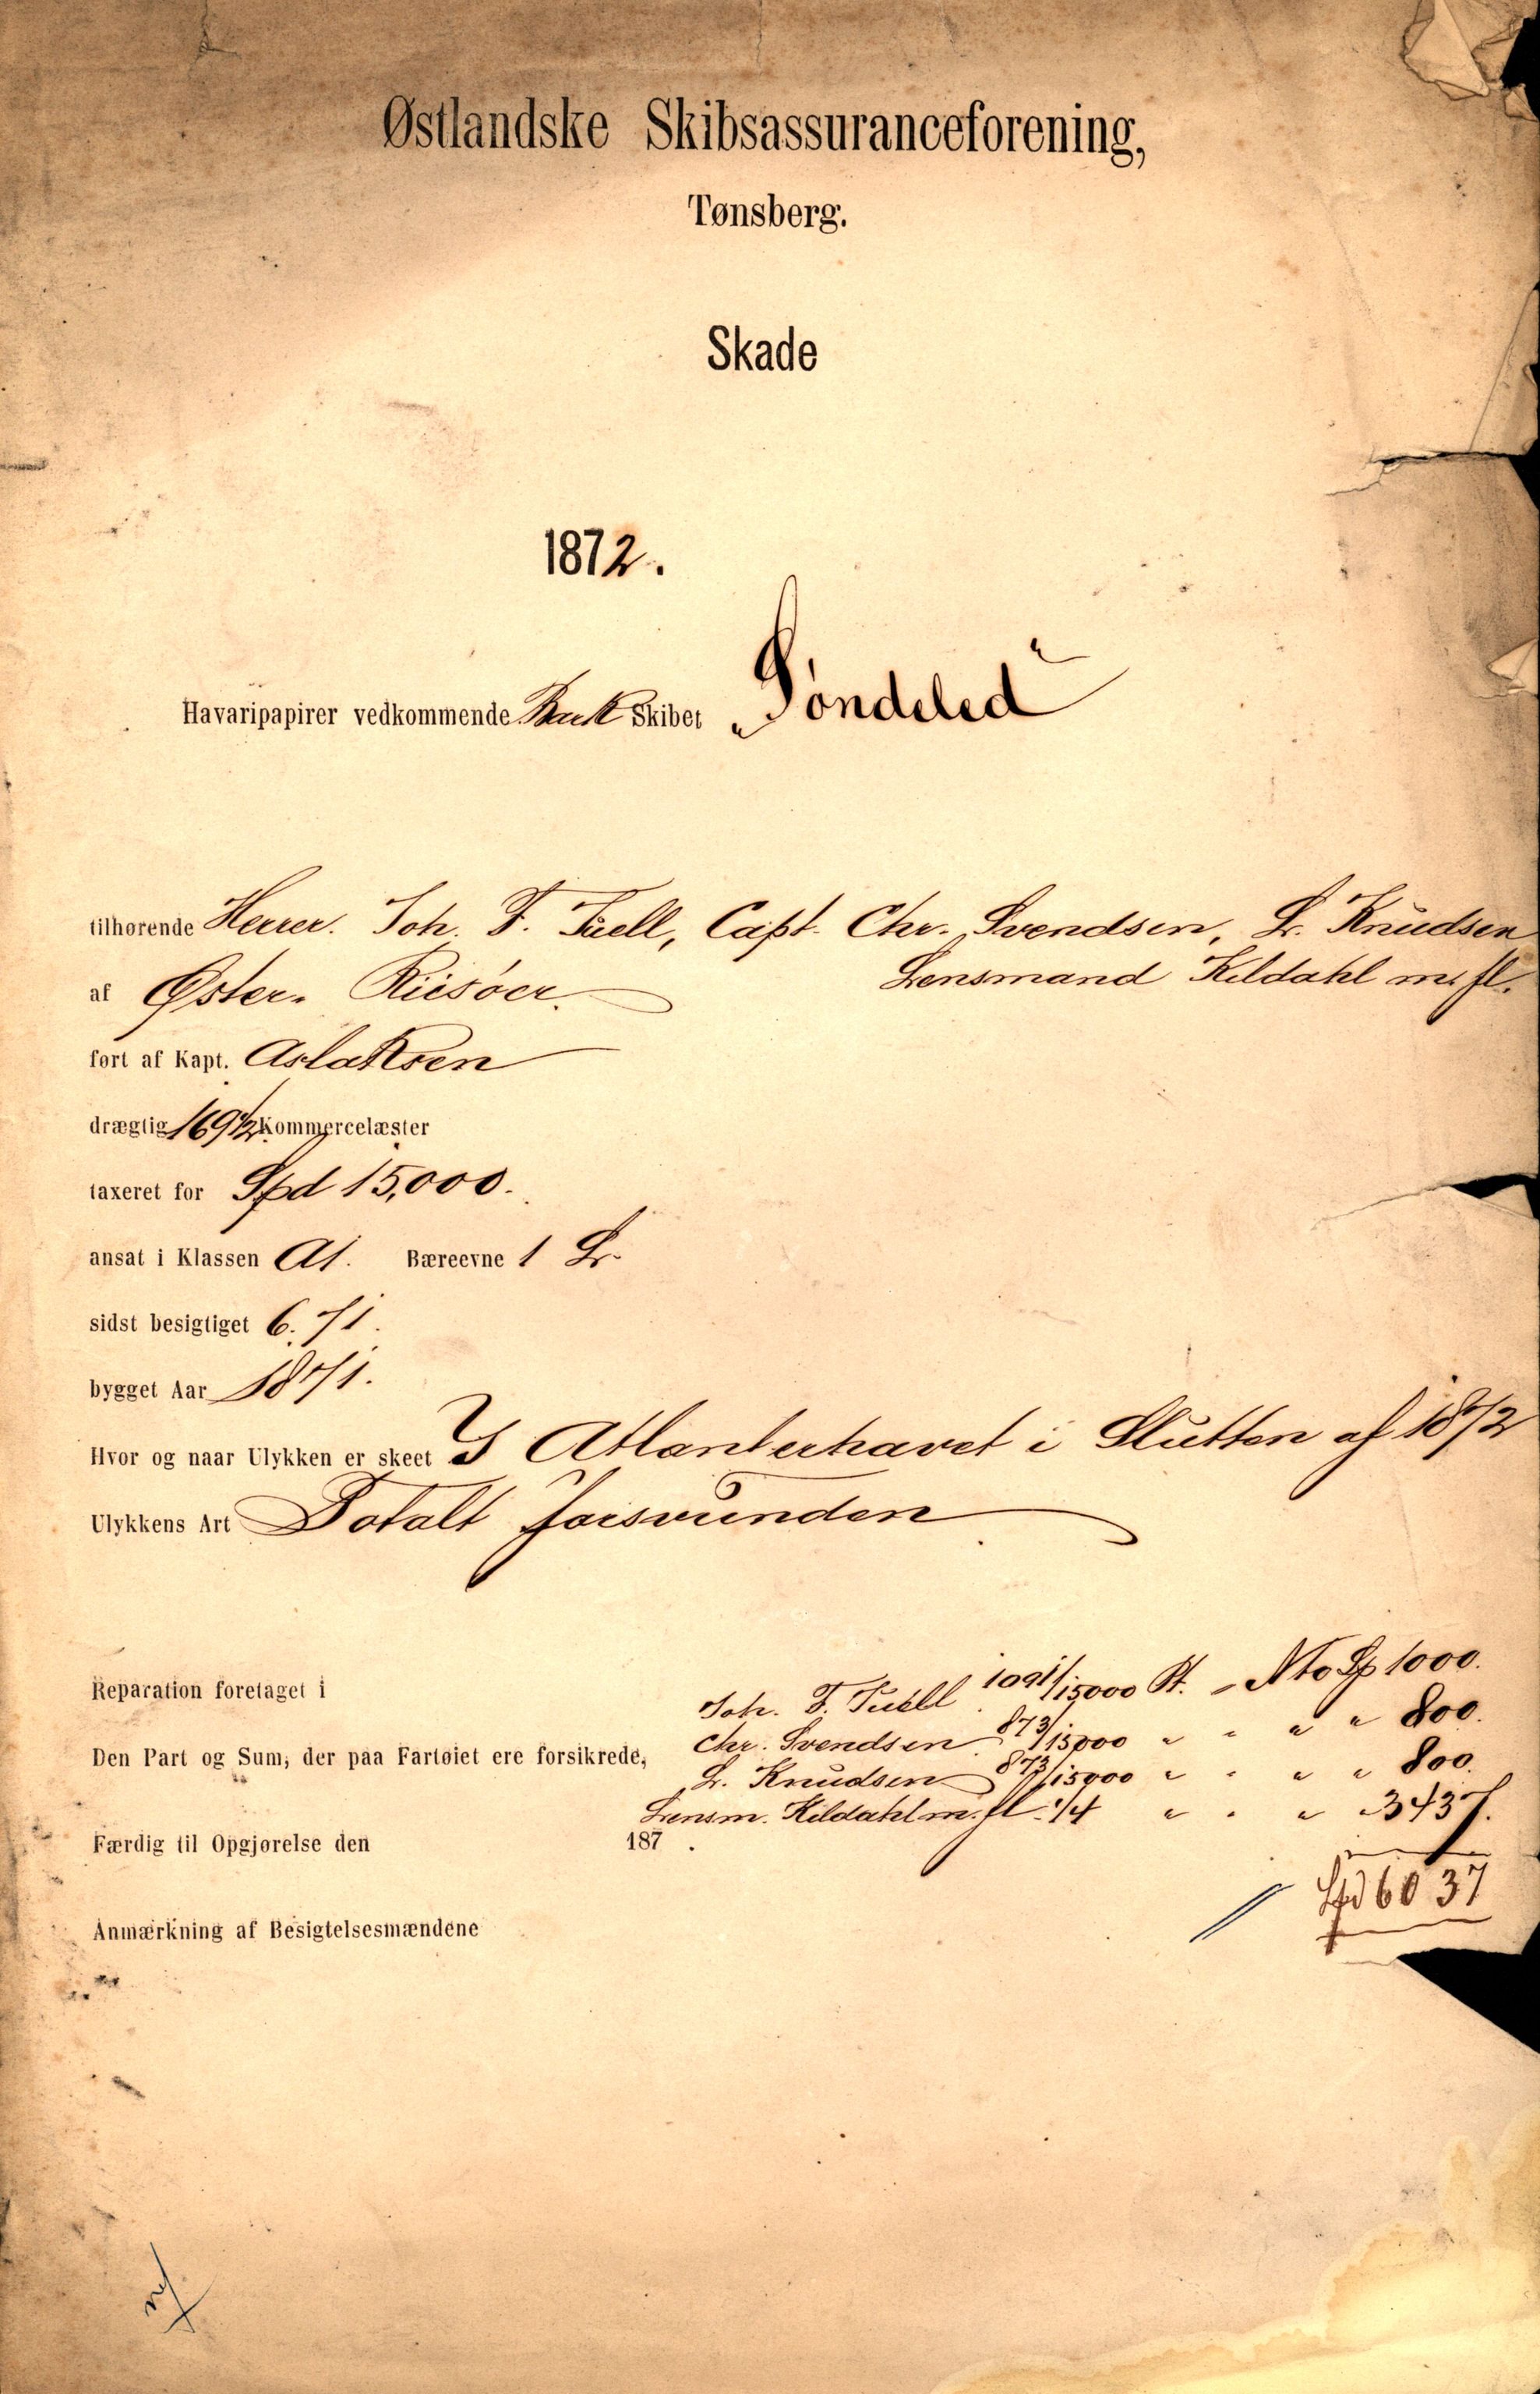 Østlandske Skibsassuranceforening,
Tønsberg.
Skade
1872.
Havaripapirer vedkommende Bark Skibet „Søndeled"
tilhørende Herrer. Joh. F. Tuell, Capt. Chr. Svendsen, L. Knudsen
Lensmand Kildahl m. fl.
af Øster-Riisøer.
ført af Kapt. Aslaksen
drægtig 169 1/2 Kommercelæster
taxeret for Spd 15,000.
ansat i Klassen A1. Bæreevne 1 Lr.
sidst besigtiget 6. 71.
bygget Aar 1871.
Hvor og naar Ulykken er skeet I Atlanterhavet i Slutten af 1872
Ulykkens Art Totalt forsvunden
Reparation foretaget i
Joh. F. Tuell 1091/15000 Pt. - Nto Sp 1000.
Den Part og Sum, der paa Fartøiet ere forsikrede, Chr. Svendsen 873/15000 " " " " 800.
L. Knudsen 873/15000 " " " " 800.
Lensm. Kildahl m. fl. 1/4 " " " " 3437.
Færdig til Opgjørelse den 187 .
Spd 6037
Anmærkning af Besigtelsesmændene